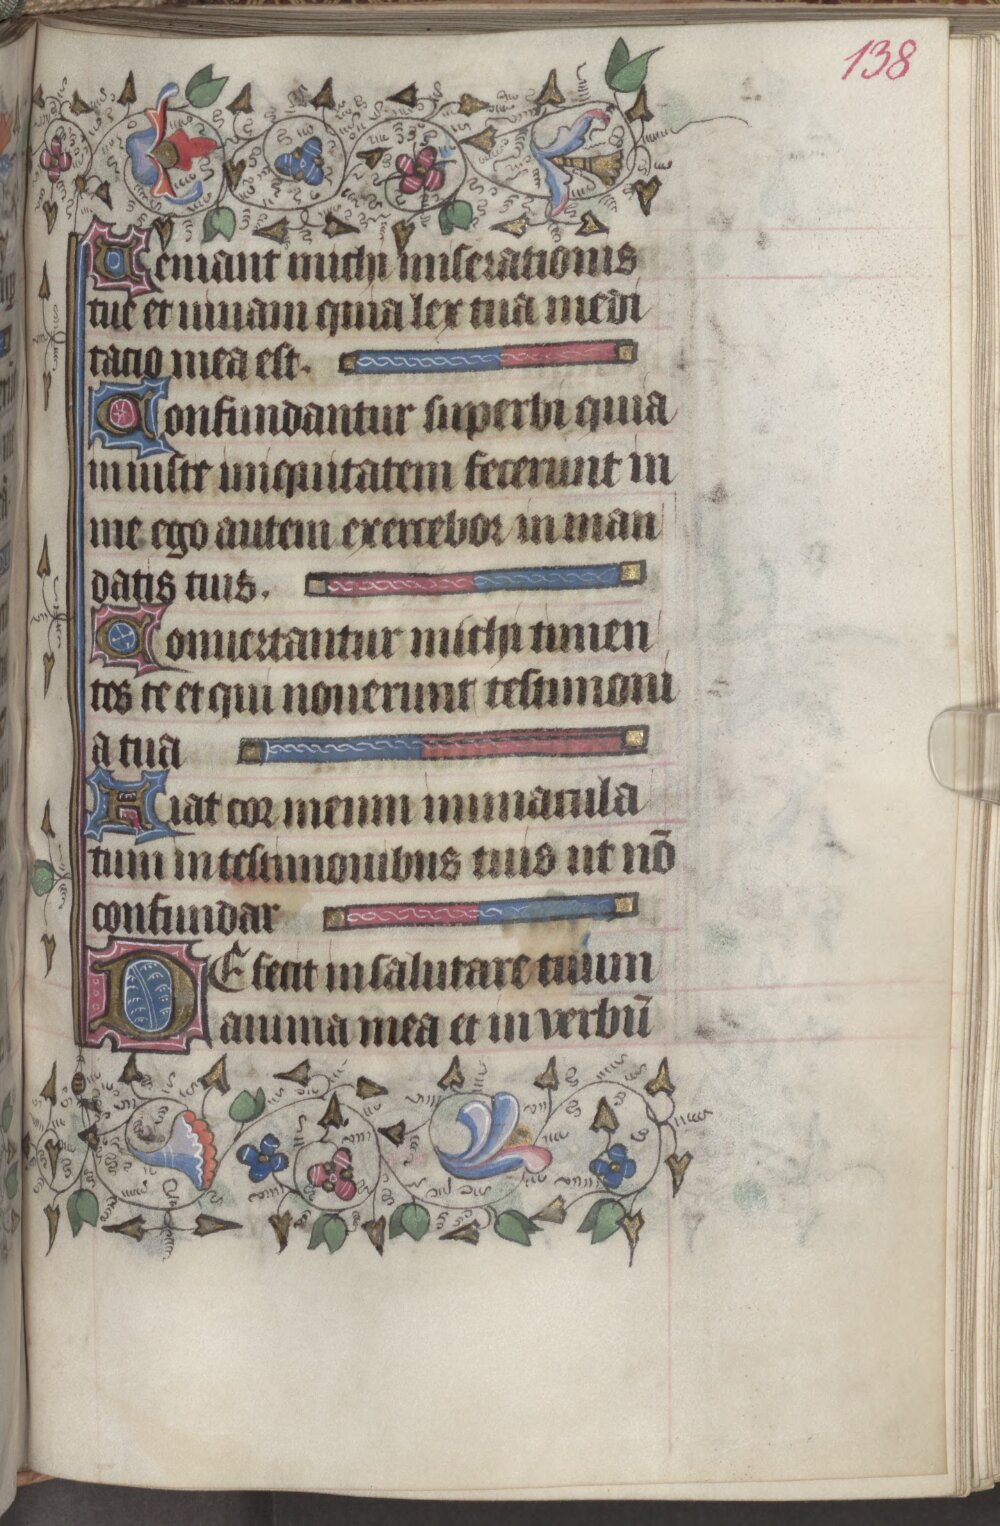 138
Veniant michi miserationis
tue et uiuam quia lex tua medi
tatio mea est.
Confundantur superbi quia
iniuste iniquitatem fecerunt in
me ego autem exercebor in man
datis tuis.
Conuertantur michi timen
tes te et qui nouerunt testimoni
a tua
Fiat cor meum immacula
tum in testimonibus tuis ut nō
confundar
DE fecit in salutare tuum
anima mea et in verbū